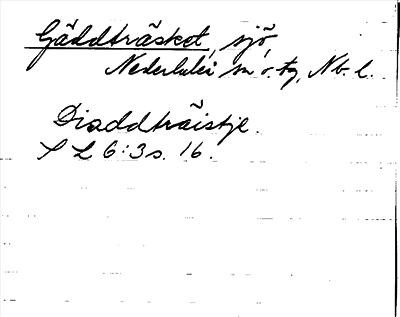 Gäddträsket, sjö,
Nederluleå sn o. tg, Nb. l.
Diaddträistje.
S L 6:3 s. 16.